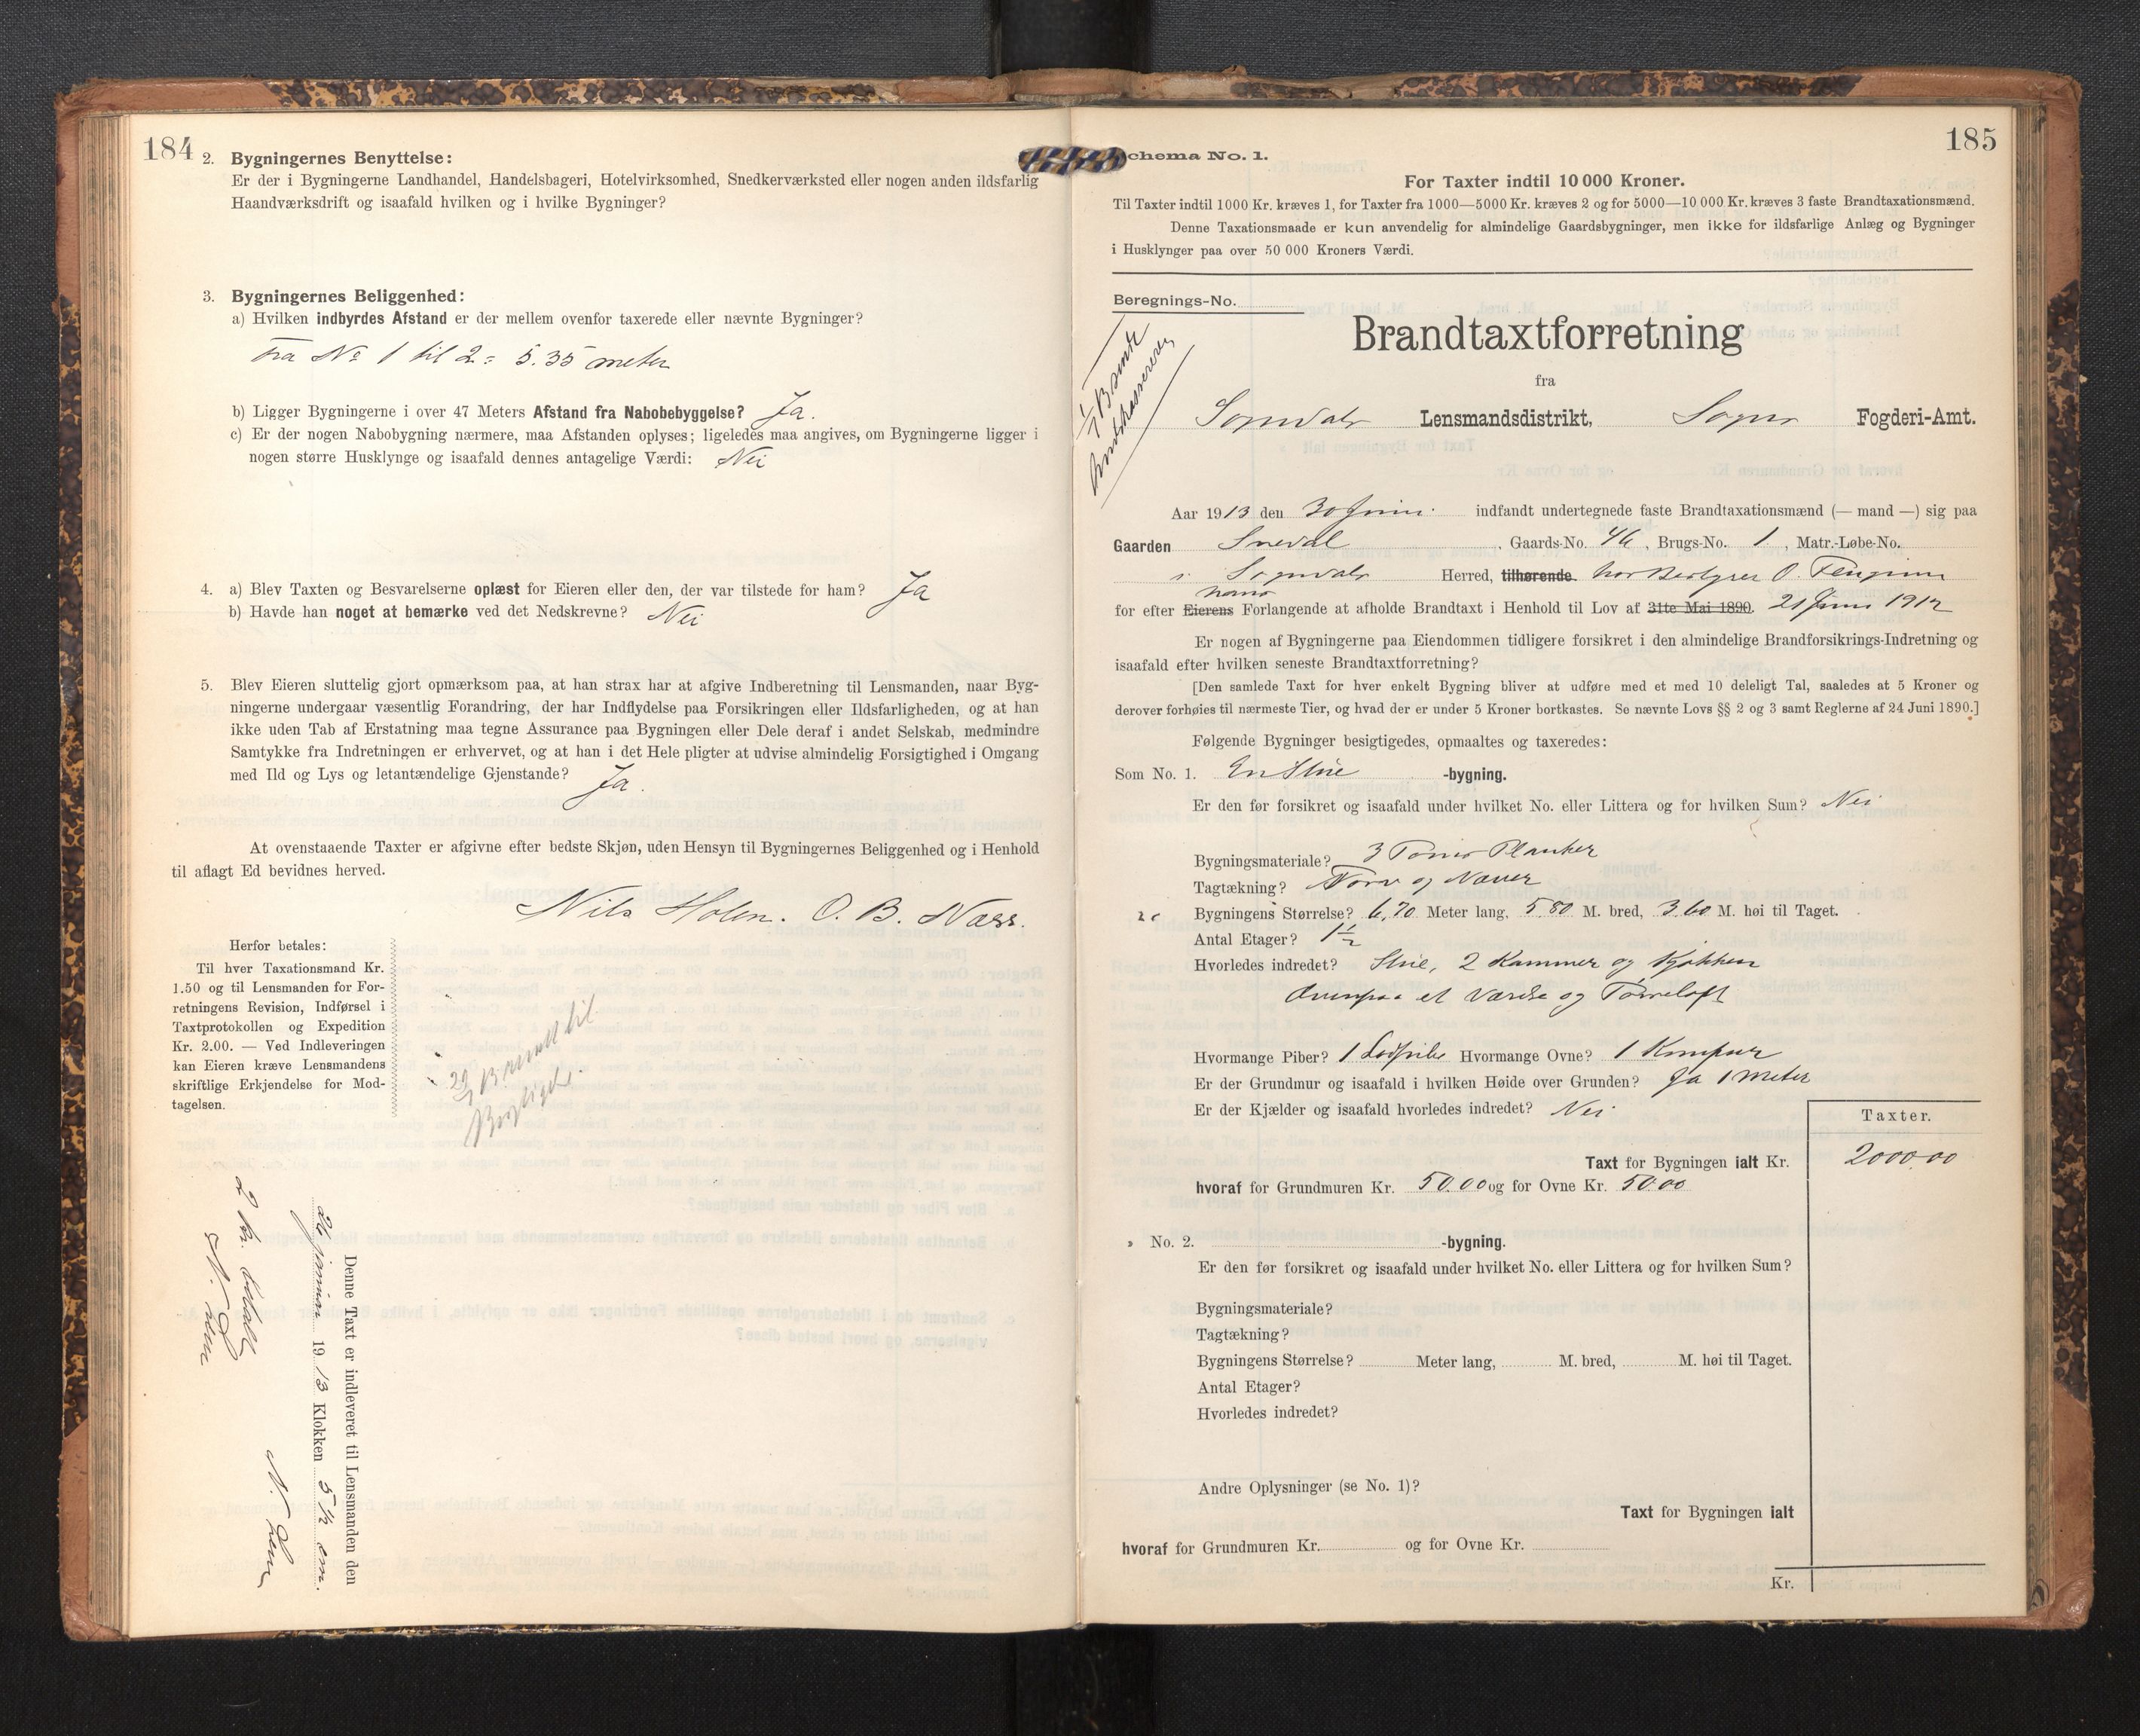 184
2. Bygningernes Benyttelse:
Er der i Bygningerne Landhandel, Handelsbageri, Hotelvirksomhed, Snedkerværksted eller nogen anden ildsfarlig
Haandværksdrift og isaafald hvilken og i hvilke Bygninger?
3. Bygningernes Beliggenhed:
a) Hvilken indbyrdes Afstand er der mellem ovenfor taxerede eller nævnte Bygninger?
Fra No 1 til 2 = 5.35 meter
b) Ligger Bygningerne i over 47 Meters Afstand fra Nabobebyggelse? Ja.
c) Er der nogen Nabobygning nærmere, maa Afstanden oplyses; ligeledes maa angives, om Bygningerne ligger i
nogen større Husklynge og isaafald dennes antagelige Værdi: Nei
4. a) Blev Taxten og Besvarelserne oplæst for Eieren eller den, der var tilstede for ham? Ja
b) Havde han noget at bemærke ved det Nedskrevne? Nei
5. Blev Eieren sluttelig gjort opmærksom paa, at han strax har at afgive Indberetning til Lensmanden, naar Byg-
ningerne undergaar væsentlig Forandring, der har Indflydelse paa Forsikringen eller Ildsfarligheden, og at han
ikke uden Tab af Erstatning maa tegne Assurance paa Bygningen eller Dele deraf i andet Selskab, medmindre
Samtykke fra Indretningen er erhvervet, og at han i det Hele pligter at udvise almindelig Forsigtighed i Omgang
med Ild og Lys og letantændelige Gjenstande? Ja.
At ovenstaaende Taxter er afgivne efter bedste Skjøn, uden Hensyn til Bygningernes Beliggenhed og i Henhold
til aflagt Ed bevidnes herved.
Nils Holen. O. B. Næss.
Herfor betales:
Til hver Taxationsmand Kr.
1.50 og til Lensmanden for For-
retningens Revision, Indførsel i
Taxtprotokollen og Expedition
Kr. 2.00. — Ved Indleveringen
kan Eieren kræve Lensmandens
skriftlige Erkjendelse for Mod-
tagelsen.
Denne Taxt er indleveret til Lensmanden den
1913 Klokken 5½ em.
2 Kr. betalt
185
Schema No. 1.
For Taxter indtil 10 000 Kroner.
Til Taxter indtil 1000 Kr. kræves 1, for Taxter fra 1000—5000 Kr. kræves 2 og for 5000—10 000 Kr. kræves 3 faste Brandtaxationsmænd.
Denne Taxationsmaade er kun anvendelig for almindelige Gaardsbygninger, men ikke for ildsfarlige Anlæg og Bygninger
i Husklynger paa over 50 000 Kroners Værdi.
Beregnings-No.
Brandtaxtforretning
fra
Sogndals Lensmandsdistrikt, Sogns Fogderi-Amt.
Aar 1913 den 30 Juni. indfandt undertegnede faste Brandtaxationsmænd (— mand —) sig paa
Gaarden Gaards-No. 46, Brugs-No. 1., Matr.-Løbe-No.
i Sogndals Herred, tilhørende
hans
for efter Eierens Forlangende at afholde Brandtaxt i Henhold til Lov af 31te Mai 1890. 21 Juni 1912
Er nogen af Bygningerne paa Eiendommen tidligere forsikret i den almindelige Brandforsikrings-Indretning og
isaafald efter hvilken seneste Brandtaxtforretning?
[Den samlede Taxt for hver enkelt Bygning bliver at udføre med et med 10 deleligt Tal, saaledes at 5 Kroner og
derover forhøies til nærmeste Tier, og hvad der er under 5 Kroner bortkastes. Se nævnte Lovs §§ 2 og 3 samt Reglerne af 24 Juni 1890.]
Følgende Bygninger besigtigedes, opmaaltes og taxeredes:
Som No. 1. En Stue -bygning.
Er den før forsikret og isaafald under hvilket No. eller Littera og for hvilken Sum? Nei
Bygningsmateriale? 3 Toms Planker
Tagtækning? Torv og Næver
Bygningens Størrelse? 6,70 Meter lang, 5.80 M. bred, 3.60 M. høi til Taget.
Antal Etager? 1½
Hvorledes indredet? Stue, 2 Kammer og Kjøkken
Ovenpaa et Værelse og Tørreloft
Hvormange Piber? 1 Hvormange Ovne? 1 Komfur
Er der Grundmur og isaafald i hvilken Høide over Grunden? Ja 1 Meter
Er der Kjælder og isaafald hvorledes indredet? Nei
Taxter.
Taxt for Bygningen ialt Kr. 2000.00
hvoraf for Grundmuren Kr. 50.00 og for Ovne Kr. 50.00
» No. 2. -bygning.
Er den før forsikret og isaafald under hvilket No. eller Littera og for hvilken Sum?
Bygningsmateriale?
Tagtækning?
Bygningens Størrelse? Meter lang, M. bred, M. høi til Taget.
Antal Etager?
Hvorledes indredet?
Andre Oplysninger (se No. 1)?
Taxt for Bygningen ialt
hvoraf for Grundmuren Kr. og for Ovne Kr.
Kr.